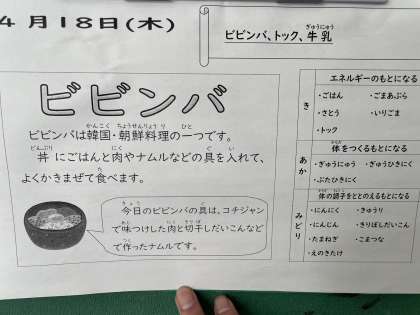 4月18日(木)
ビビンバ、トック、牛乳
ぎゅうにゅう
ビビンバ
ビビンバは韓国・朝鮮料理の一つです。
かんこく ちょうせんりょうり ひと
丼にごはんと肉やナムルなどの具を入れて、
どんぶり にく ぐ い
よくかきまぜて食べます。
た
今日のビビンバの具は、コチジャン
きょう ぐ
で味つけした肉と切干しだいこんなど
あじ にく きりぼ
で作ったナムルです。
つく
き
エネルギーのもとになる
・ごはん ・ごまあぶら
・さとう ・いりごま
・トック
あか
体をつくるもとになる
からだ
・ぎゅうにゅう ・ぎゅうひきにく
・ぶたひきにく
みどり
体の調子をととのえるもとになる
からだ ちょうし
・にんにく ・きゅうり
・にんじん ・きりぼしだいこん
・たまねぎ ・こまつな
・えのきたけ